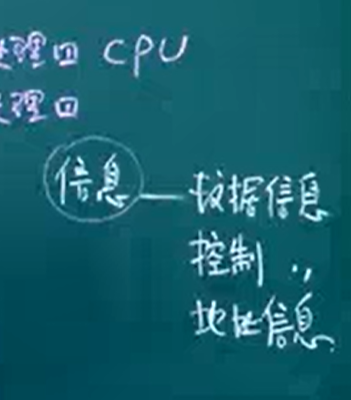 处理口 CPU
处理口
信息 — 数据信息
控制 〃
地址信息